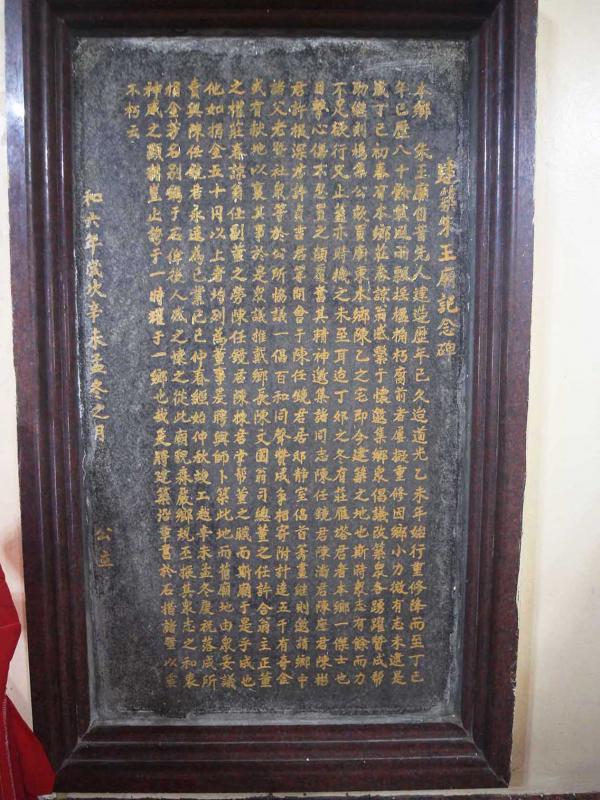 建築朱王廟記念碑
本鄉　朱王廟自昔先人建造歷年已久迨道光乙未年始行重修降而至丁巳
年已歷八十餘載風雨飄搖榱桷朽腐前者屢擬重修因鄉小力微有志未逮是
歲丁巳初春有本鄉莊春諒翁感縈于懷邀集鄉眾倡議改築眾各踴躍贊成幫
助繼則鳩集公款買廟東本鄉陳乙之宅即今建築之地也斯時眾志有餘而力
不足欲行又止蓋亦時機之未至耳迨丁卯之冬有莊雁塔君者本鄉一傑士也
目擊心傷不忍置之顧復奮其精神邀集諸同志陳任鏡君陳濤君陳座君陳彬
君許根深君許貞吉君等開會于陳任鏡君居邸靜室倡首籌畫繼則邀請鄉中
諸父老暨社眾等於公所協議一倡百和同聲贊成爭相寄附計達五千有奇金
或有獻地以襄其事於是眾議推戴鄉長陳文國翁司總董之任許合翁主正董
之權莊春諒翁任副董之勞陳任鏡君陳棟君掌幫董之職而斯廟于是乎成也
他如捐金五十円以上者均列為董事爰聘輿師卜築此地而舊廟地由眾妥議
賣與陳任鏡君永遠為己業己巳仲春經始仲秋竣工越辛未孟冬慶祝落成所
捐金芳名別鐫于石俾後人感之懷之從此廟貌森嚴鄉規丕振其眾志之和衷
神威之顯赫豈止誇于一時耀于一鄉也哉是將建築沿革書於石措諸壁以垂
不朽云
和六年歲次辛未孟冬之月　公立